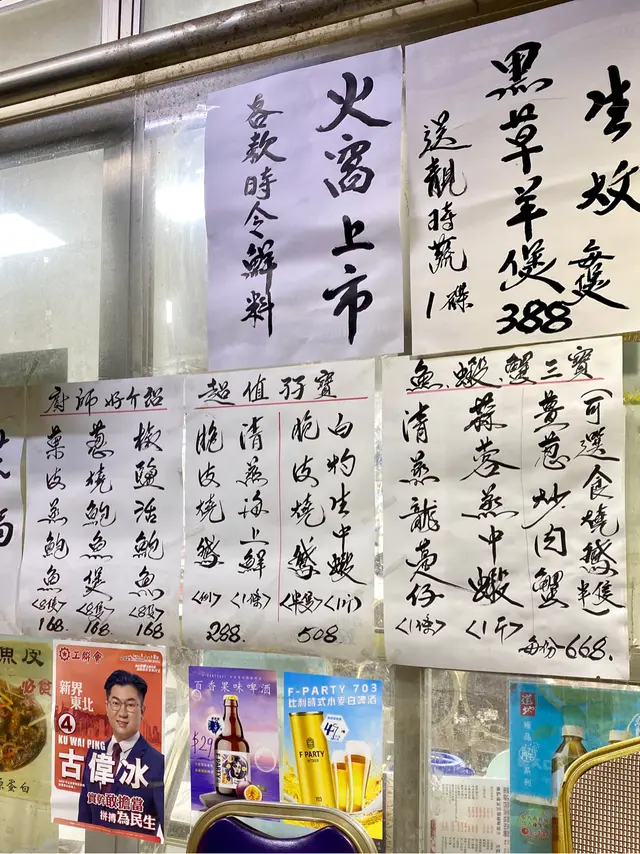 生炆
黑草羊煲
每煲
388
送靚時蔬1碟
火窩上市
各款時令鮮料
魚,蝦,蟹三寶
(可選食燒鵝半隻)
薑葱炒肉蟹
蒜蓉蒸中蝦<1斤>
清蒸龍躉仔<1條>
每份-668.
超值孖寶
白灼生中蝦<1斤>
脆皮燒鵝<半隻>
508.
清蒸海上鮮<1條>
脆皮燒鵝<例>
288.
廚師好介紹
椒鹽活鮑魚<8隻>
168
葱燒鮑魚煲<8隻>
168.
菓皮蒸鮑魚<8隻>
168.
魚皮
工聯會
新界
東北
4
KU WAI PING
古偉冰
實幹敢擔當
拼搏為民生
百香果味啤酒
$29
F-PARTY 703
比利時式小麥白啤酒
F·PARTY
703
道地